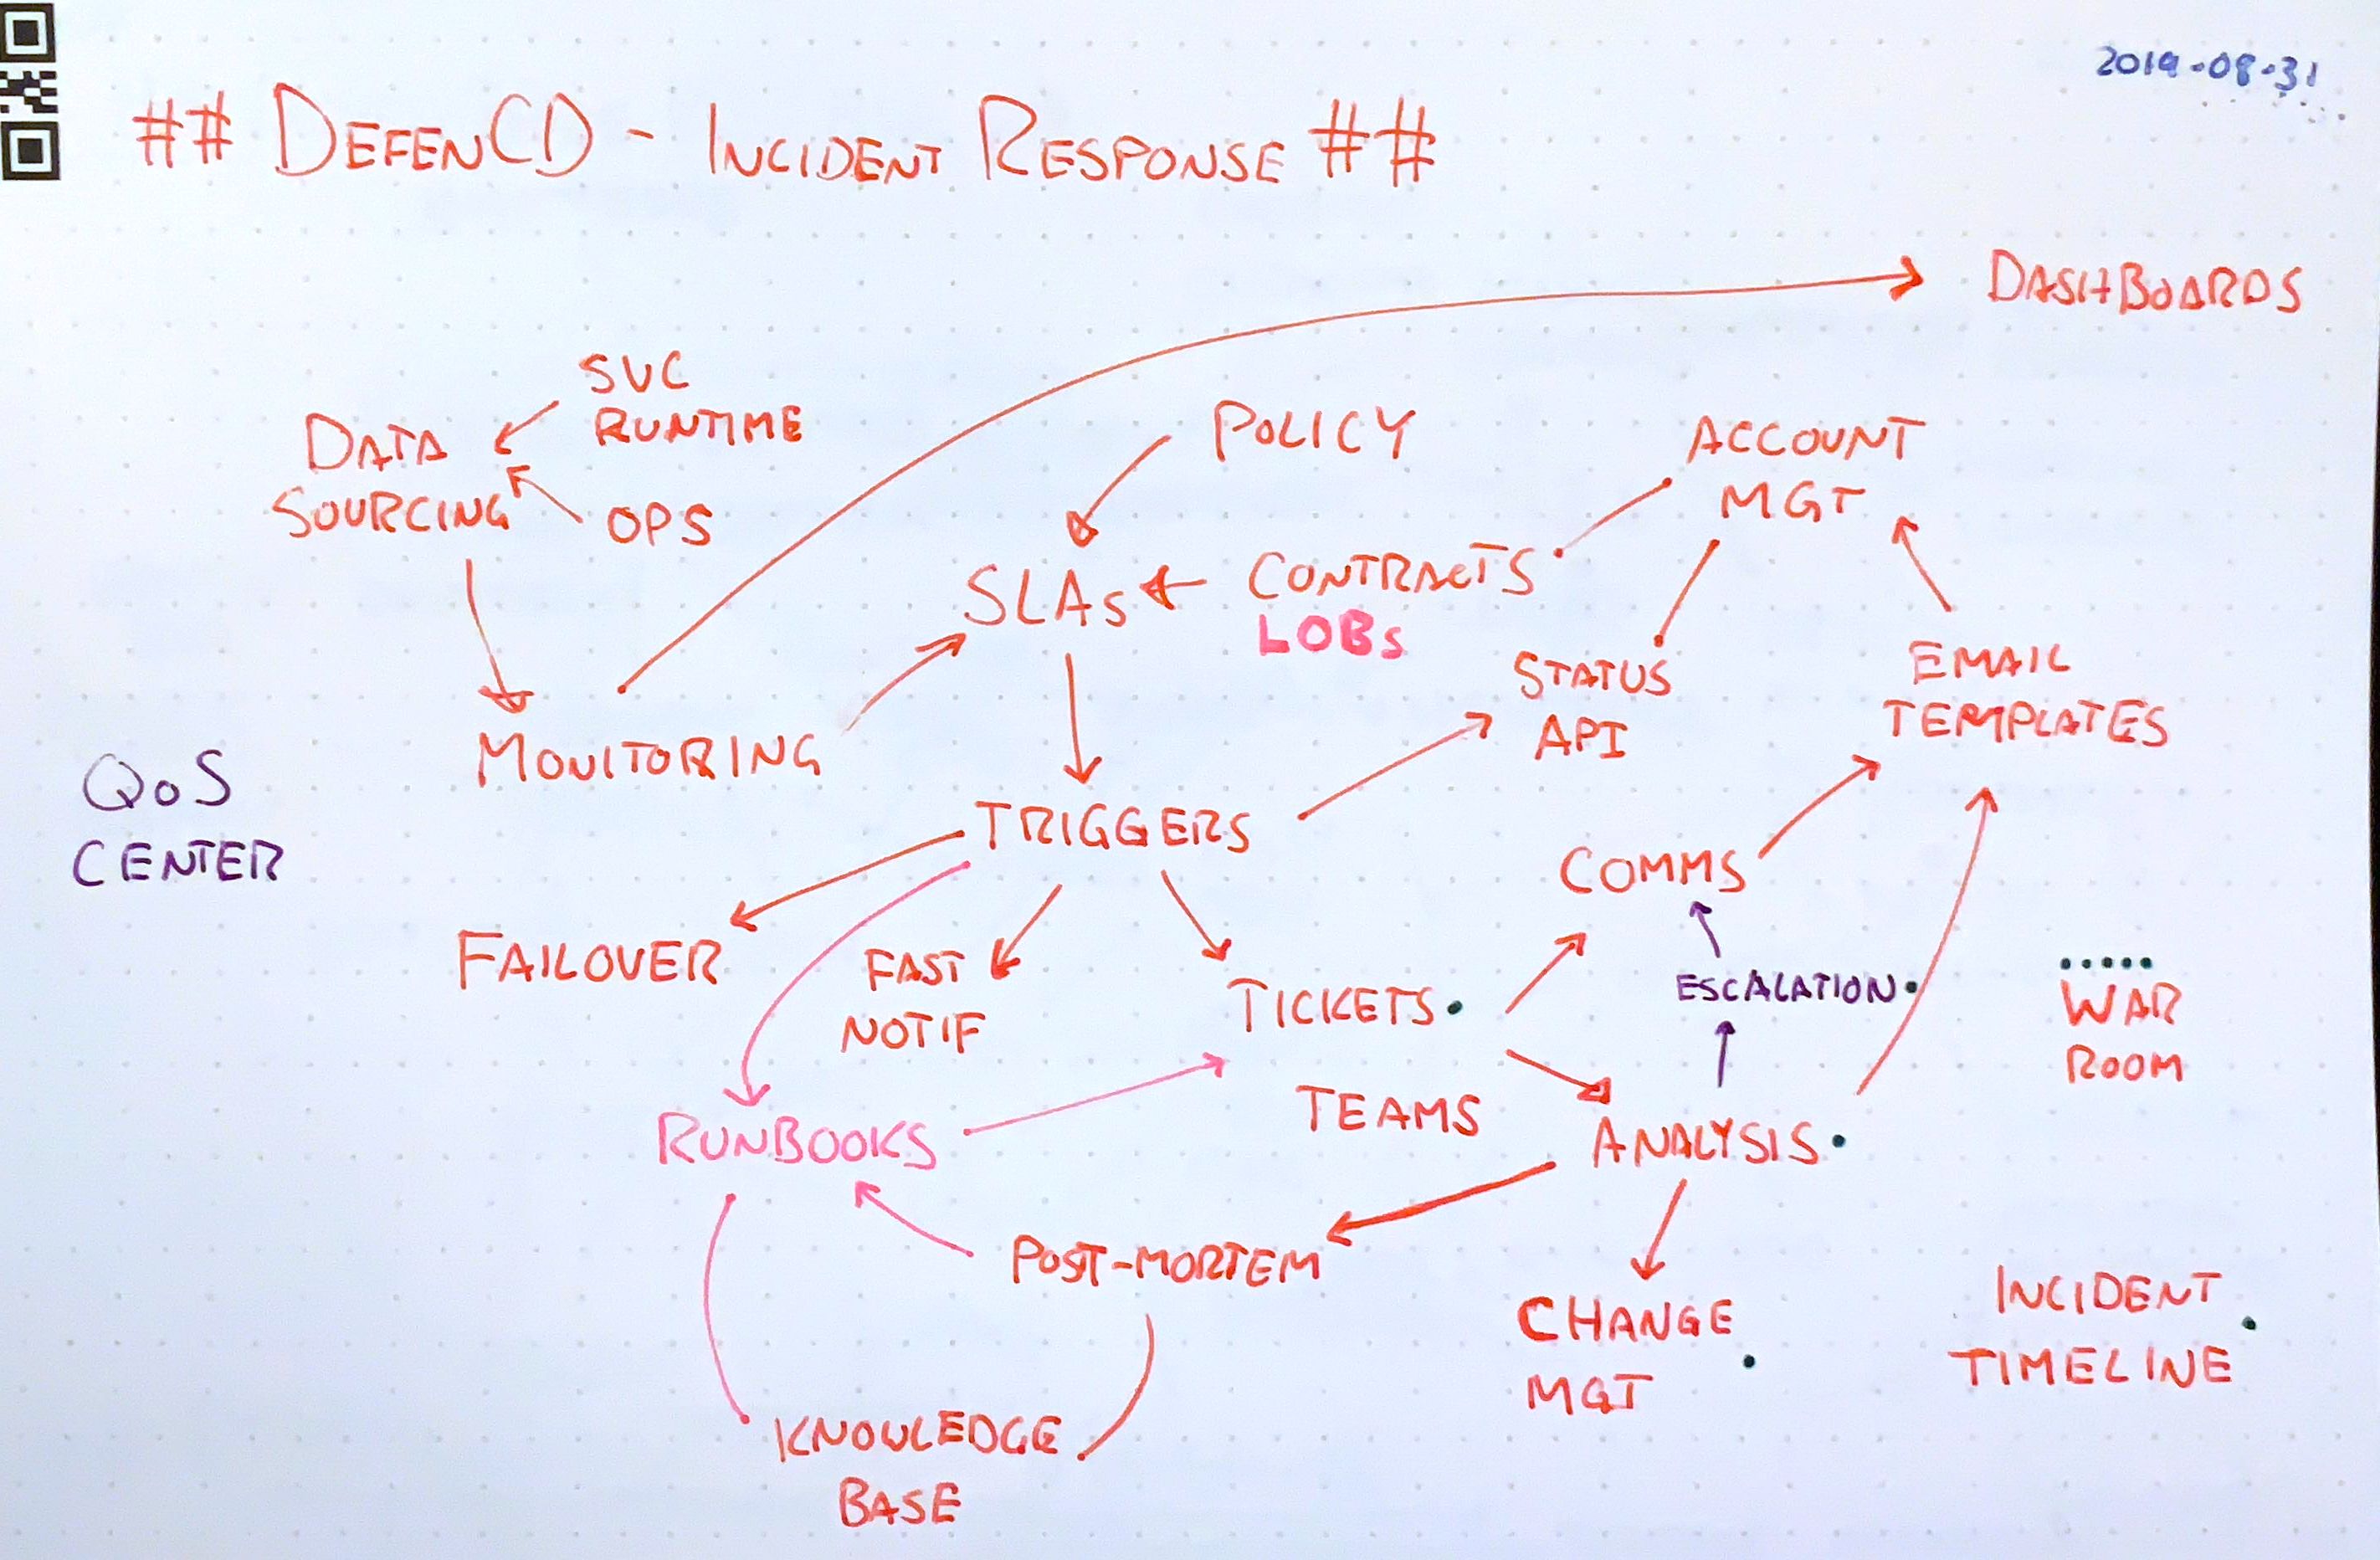 2019-08-31
## DEFENCD - INCIDENT RESPONSE ##
DASHBOARDS
SVC
RUNTIME
DATA
SOURCING
OPS
POLICY
ACCOUNT
MGT
SLAs
CONTRACTS
LOBs
STATUS
API
EMAIL
TEMPLATES
MONITORING
QoS
CENTER
TRIGGERS
COMMS
FAILOVER
FAST
NOTIF
TICKETS
ESCALATION
WAR
ROOM
TEAMS
RUNBOOKS
ANALYSIS
POST-MORTEM
CHANGE
MGT
INCIDENT
TIMELINE
KNOWLEDGE
BASE